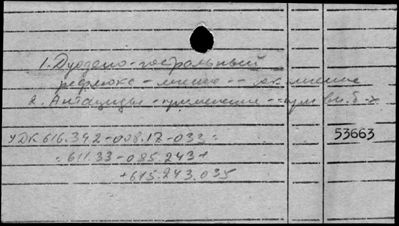 1. Дуодено-гастральный
рефлюкс - лечение --
2. Антациды - применение -- при
УДК 616.342-008.17-033: 53663
:611.33-085.243+
+615.243.035